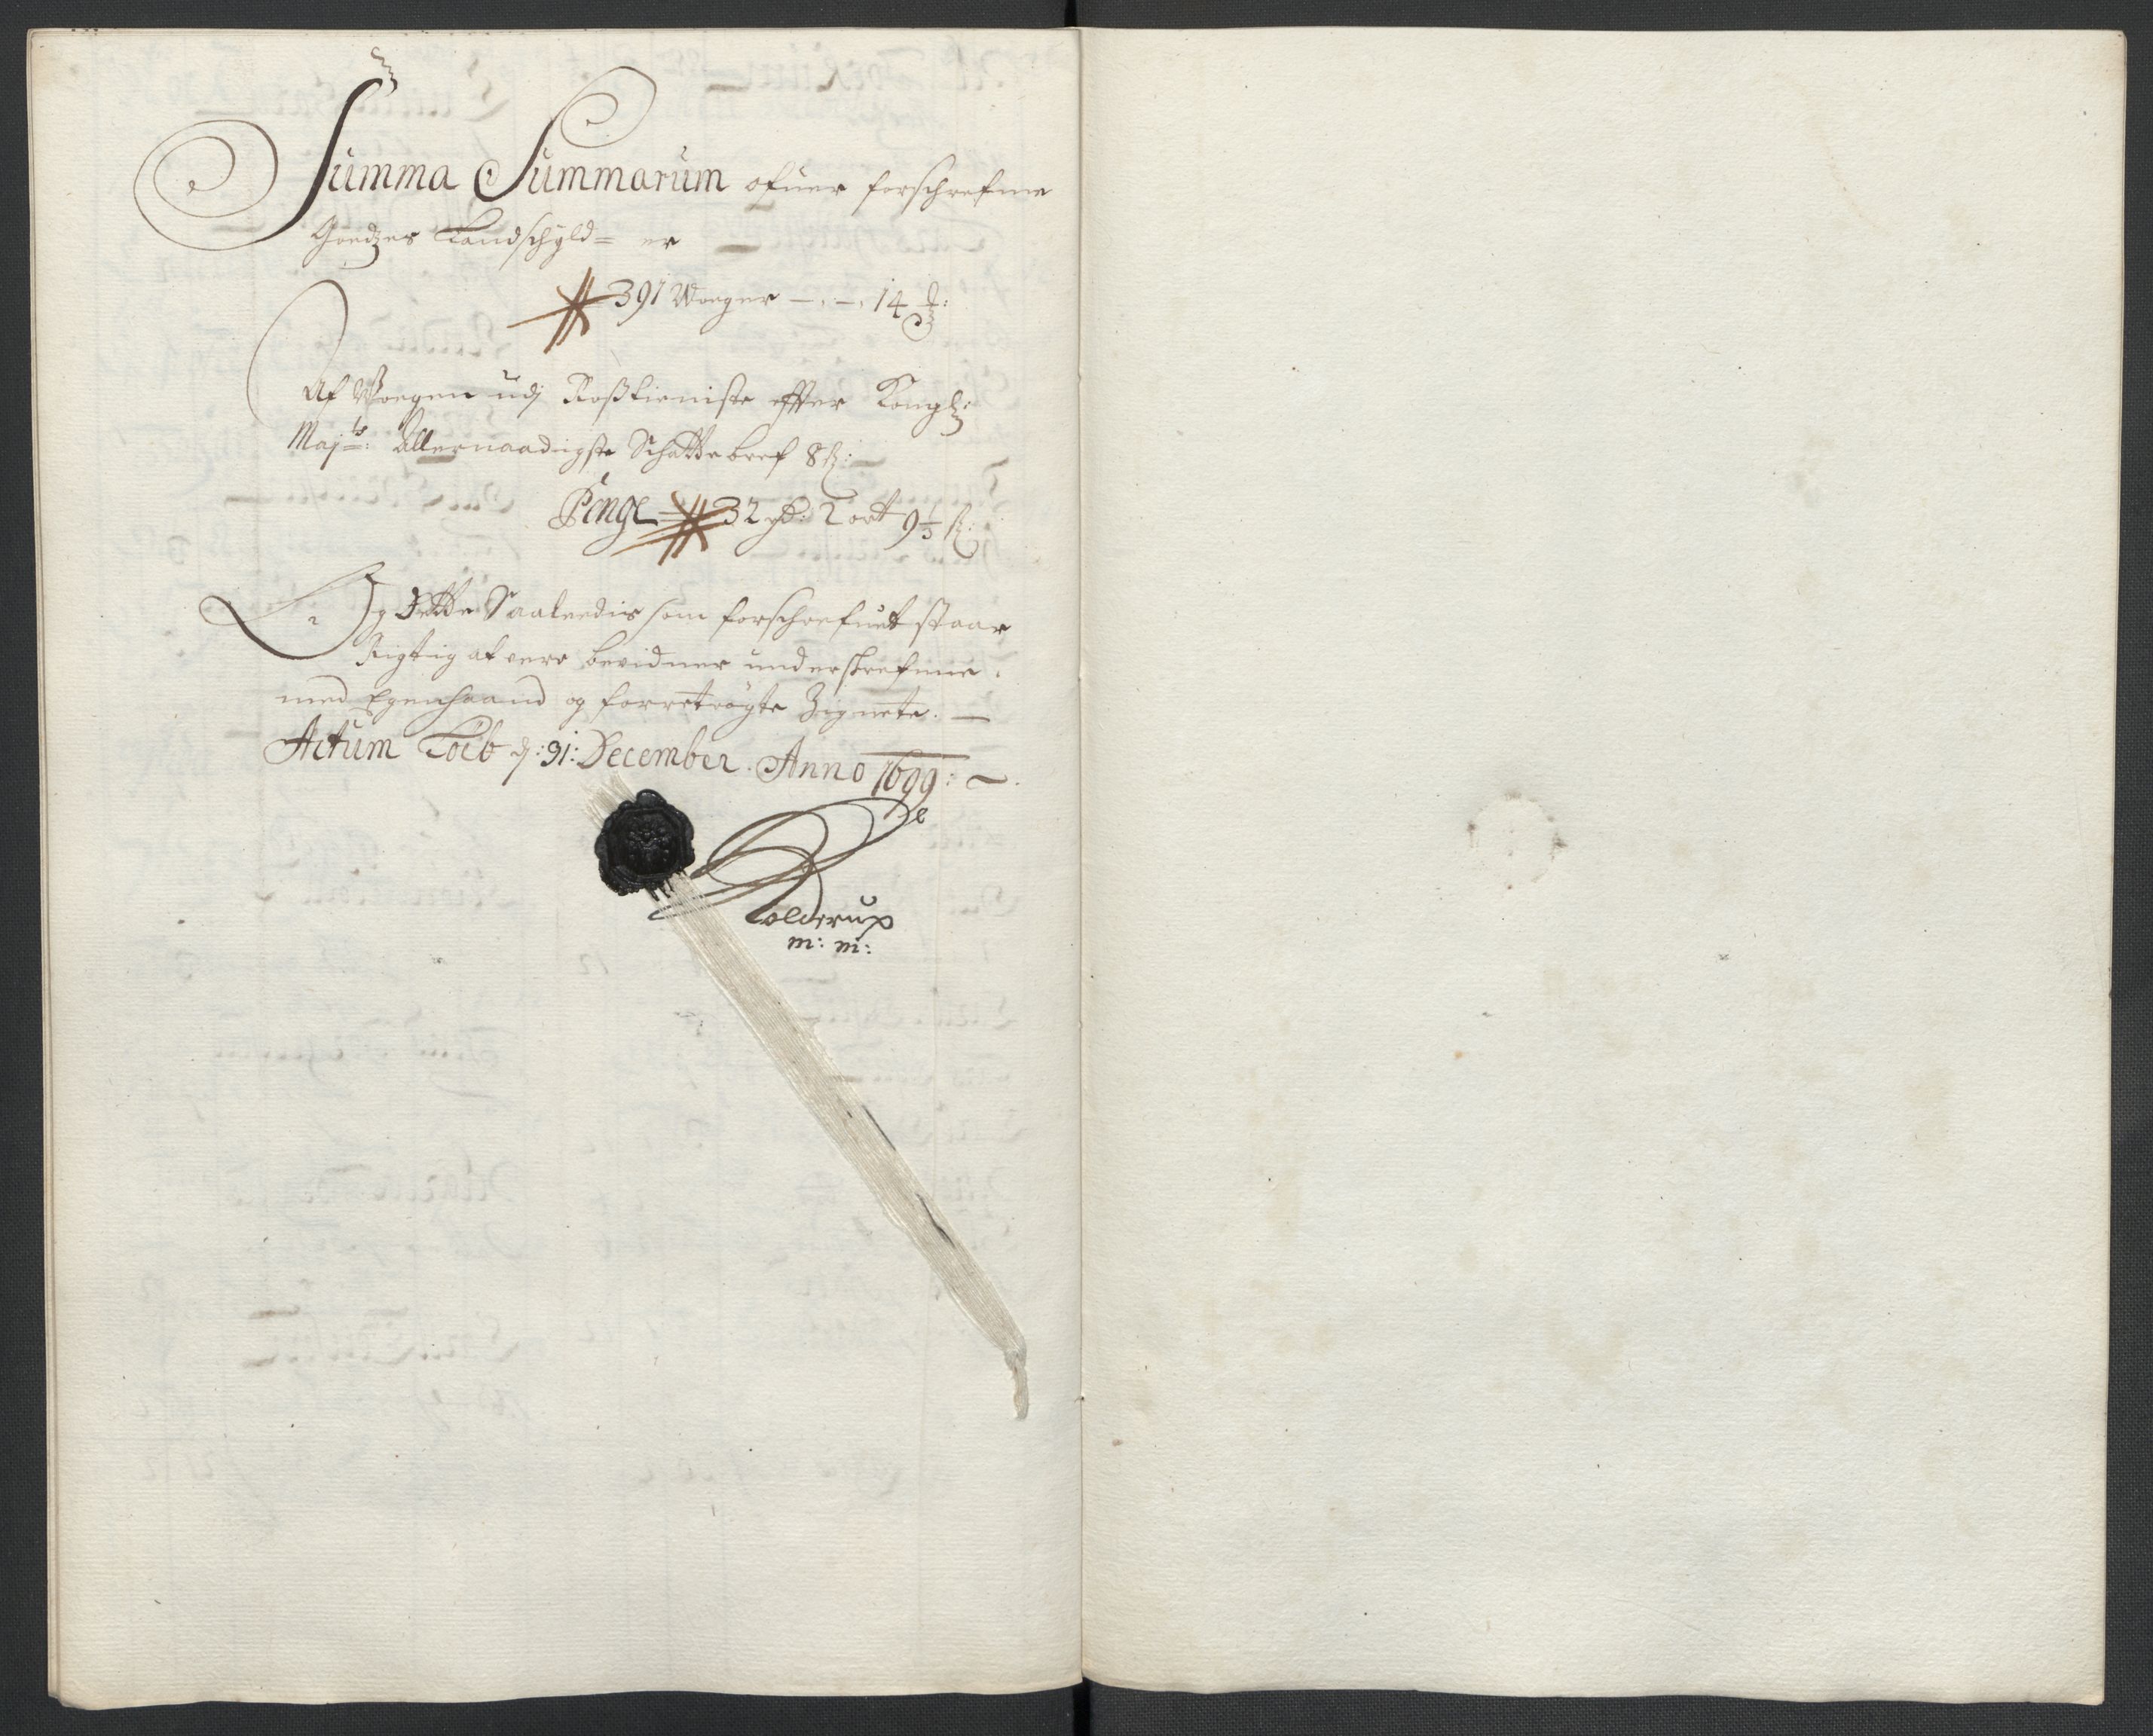 Summa Summarum ofuer forschrefne
Goedzes Landschyld= er
391 Woeger — . — . 14
Af Woegen udj Roßtieniste effter Kongl:
Maj:ts: Allernaadigste Schattebref 8 ß:
Penge 32 rd: 2 ort 9 1/3 ß:
Og Dette Saaledis som forschrefuet staar
Rigtig at vere bevidner underskrefne.
med Egenhaand og forretrøgte Zignete. —
Actum Toeb d: 31: December. Anno 1699: —
Colderup
m: m: